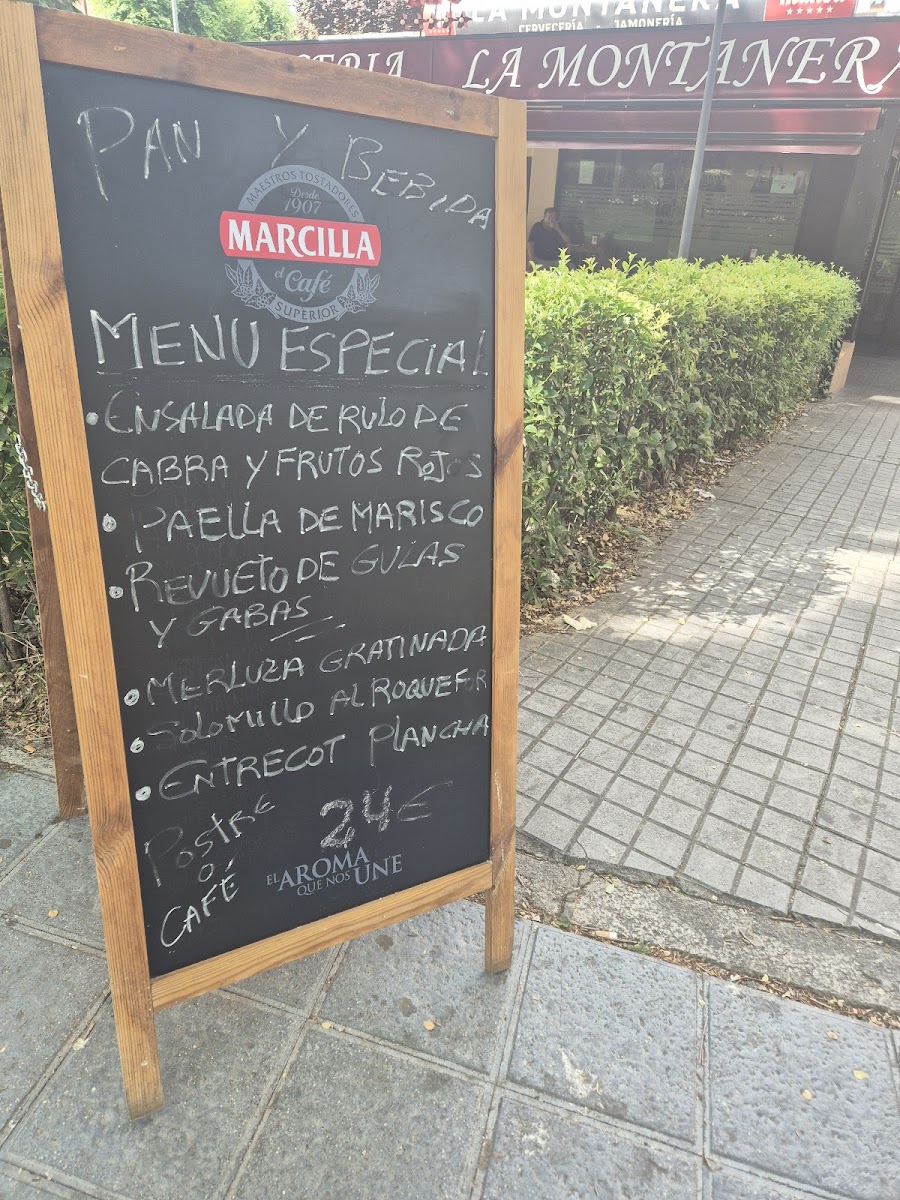 LA MONTANERA
CERVECERÍA - JAMONERÍA
LA MONTANERA
PAN Y BEBIDA
MAESTROS TOSTADORES
Desde
1907
MARCILLA
el Café
SUPERIOR
MENU ESPECIAL
• ENSALADA DE RULO DE
CABRA Y FRUTOS ROJOS
• PAELLA DE MARISCO
• REVUETO DE GULAS
Y GABAS
• MERLUZA GRATINADA
• SOLOMILLO AL ROQUEFOR
• ENTRECOT PLANCHA
POSTRE
Ó
CAFÉ
24€
EL AROMA
QUE NOS UNE